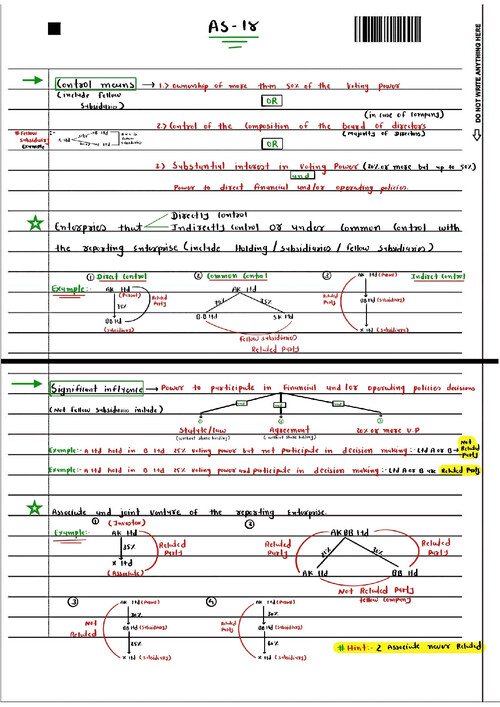 AS-18
DO NOT WRITE ANYTHING HERE
Control means → 1.) ownership of more than 50% of the voting power
(include fellow subsidiaries)
OR
(in case of company)
2.) Control of the composition of the board of directors
(Majority of Directors)
# Fellow Subsidiary Example
A ltd
OR
3.) Substantial interest in voting Power (20% or more but up to 50%)
and
Power to direct financial and/or operating policies.
Directly control
Enterprises that Indirectly control or under common control with
the reporting Enterprise (include Holding / subsidiaries / fellow subsidiaries)
① Direct control ② Common Control ③ Indirect Control
Example:- AK ltd (Parent) AK ltd AK ltd (Parent)
Related Party
BB ltd (Subsidiaries) BB ltd SK ltd BB ltd (Subsidiaries)
X ltd (Subsidiaries)
Fellow subsidiaries
Related Party
Significant influence → Power to participate in financial and/or operating policies decisions
(Not fellow subsidiaries include)
① ② ③
Statute/law Agreement 20% or more V.P
(without share holding) (without share holding)
Example:- A ltd held in B ltd 25% voting power but not participate in decision making :- Ltd A or B → Not Related Party
Example:- A ltd held in B ltd 25% voting power and participate in decision making :- Ltd A or B are Related Party
Associate and joint venture of the reporting Enterprise.
① (Investor) ②
Example:- AK ltd AKBB ltd
35% Related Party Related Party Related Party
X ltd
(Associate) AK ltd BB ltd
Not Related Party
fellow company
③ AK ltd (Parent) ④ AK ltd (Parent)
Not Related 30% Related Party
BB ltd (Subsidiaries) BB ltd (Subsidiaries)
25% 60%
X ltd (Subsidiaries) X ltd (Subsidiaries)
# Hint:- 2 Associate never Related